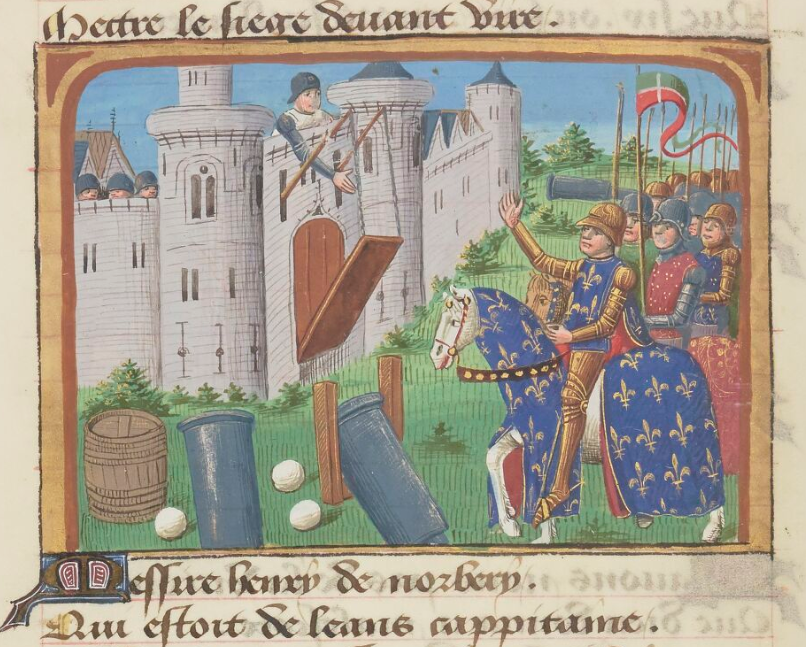 Mettre le siege deuant vire.
Messire henry de norbery.
Qui estoit de leans cappitaine.